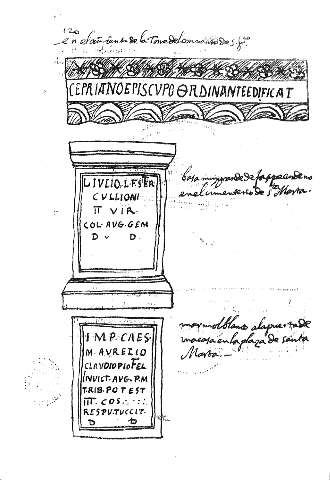 en el cimiento de la Torre del convento de S. Fco
CEPRIANO EPISCVPO ORDINANTE EDIFICAT
LIVLIO L F SER
CVLLIONI
II VIR
COL·AVG·GEM
D · D
basa muy grande de jaspe
en el cimenterio de Sta Marta.
IMP CAES
M·AVRELIO
CLAVDIO PIO FEL
INVICT·AVG·P·M
TRIB·POTEST
III COS · : ·
RESPV·TVCCIT·
D D
marmol blanco a la puerta de
una casa en la plaza de santa
Marta